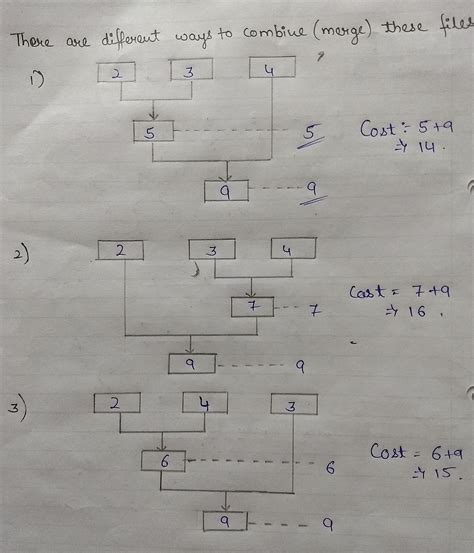 There are different ways to combine (merge) these files
1)
2 3 4
5 5 Cost : 5+9
⇒ 14.
9 9
2)
2 3 4
7 7 Cost = 7+9
⇒ 16.
9 9
3)
2 4 3
6 6 Cost = 6+9
⇒ 15.
9 9